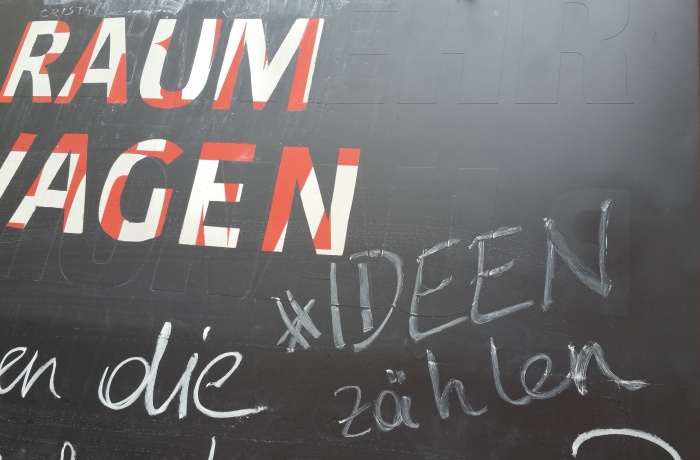 RAUM
WAGEN
#IDEEN
zählen
en die